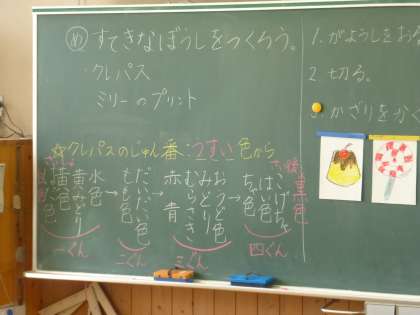 め すてきなぼうしをつくろう。
・クレパス
ミリーのプリント
☆クレパスのじゅん番:うすい色から
水色
黄みどり
黄色
はだ色
一ぐん
だいだい色
ももいろ
二ぐん
おうど色
みどり
むらさき
赤 青
三ぐん
さい後 黒色
こげちゃ
はい色
ちゃ色
四ぐん
1. がようしをお
2. 切る。
3. かざりをかく